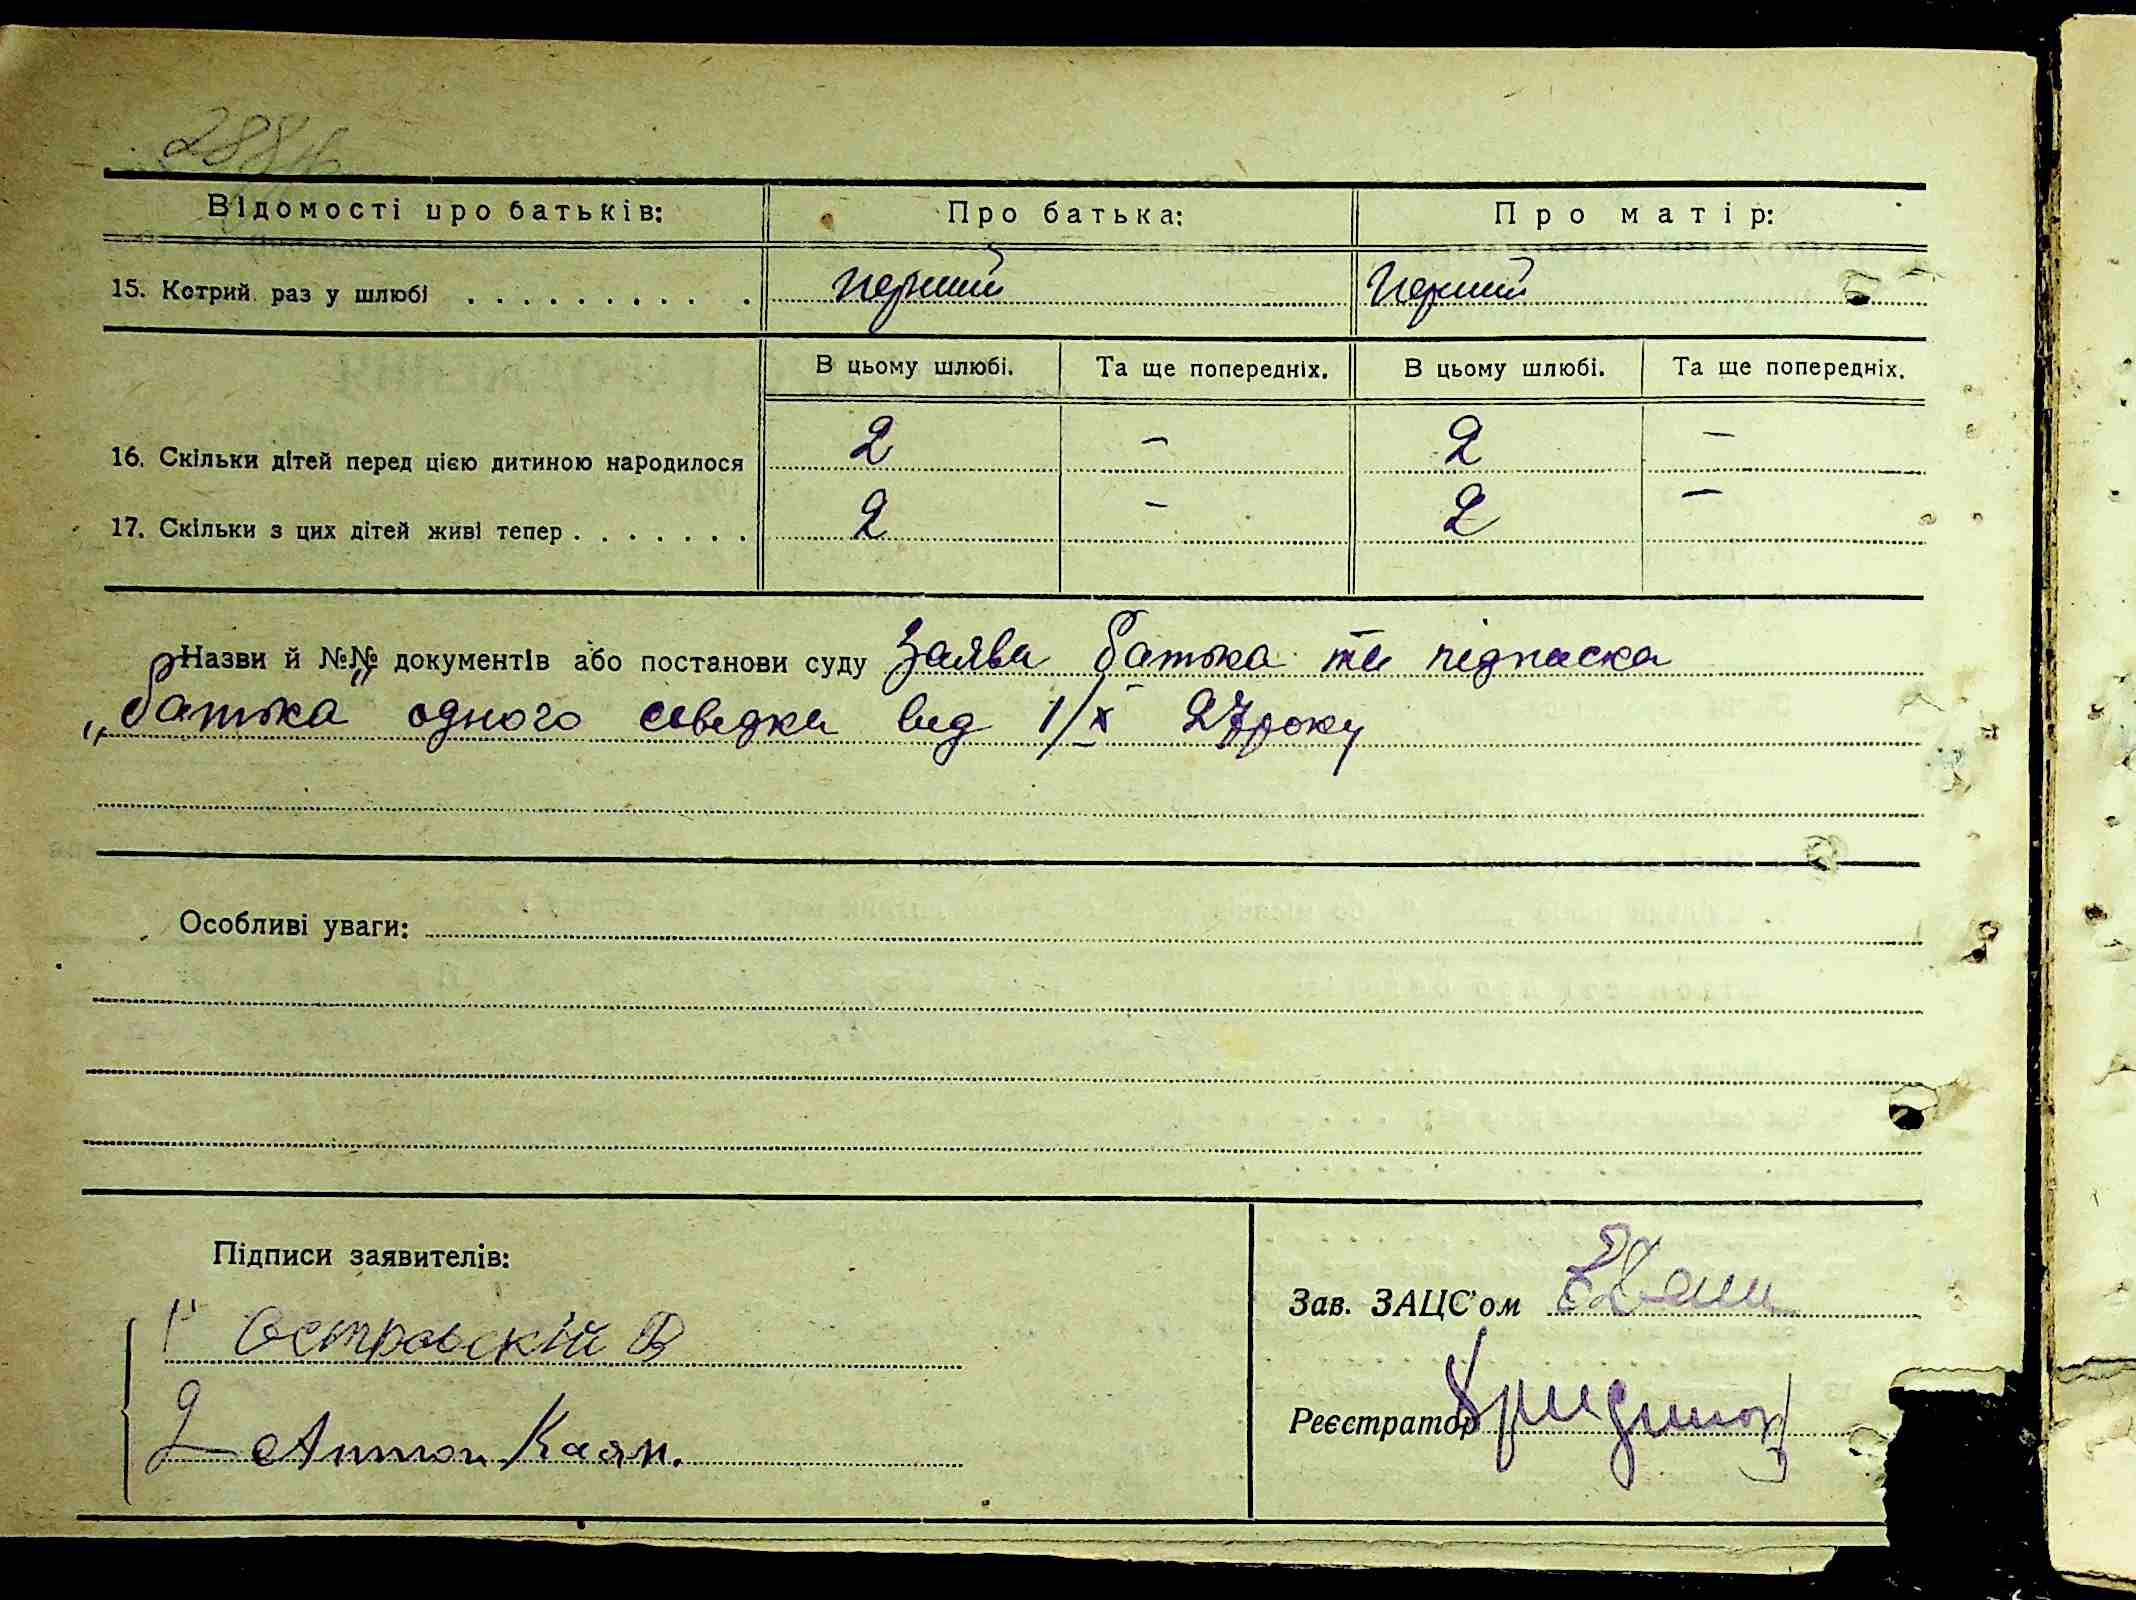 Відомості про батьків: Про батька: Про матір:
15. Котрий раз у шлюбі . . . . . . . . . . перший перший
В цьому шлюбі. Та ще попередніх. В цьому шлюбі. Та ще попередніх.
16. Скільки дітей перед цією дитиною народилося 2 – 2 –
17. Скільки з цих дітей живі тепер . . . . . . . 2 – 2 –
Назви й №№ документів або постанови суду Заява батька та підписка
„батька" одного свідка від 1/X 27 року
Особливі уваги:
Підписи заявителів:
Зав. ЗАЦС'ом
1 Островскій В
2 Антон Каян.
Реєстратор